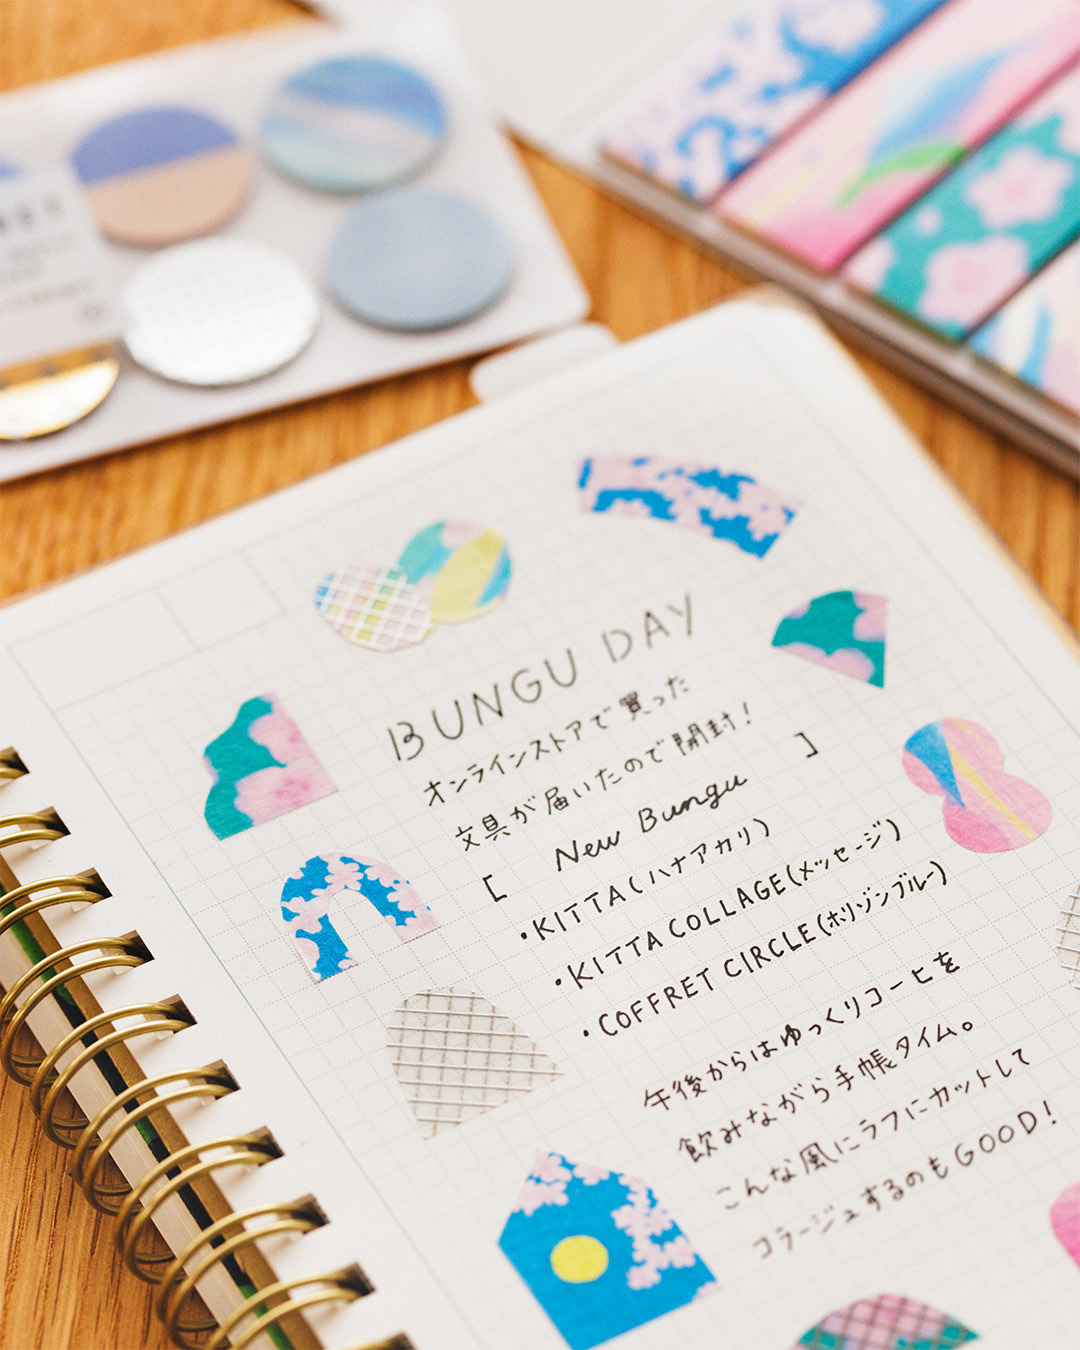 BUNGU DAY
オンラインストアで買った
文具が届いたので開封！
[ New Bungu ]
・KITTA(ハナアカリ)
・KITTA COLLAGE(メッセージ)
・COFFRET CIRCLE(ホリゾンブルー)
午後からはゆっくりコーヒーを
飲みながら手帳タイム。
こんな風にラフにカットして
コラージュするのもGOOD！